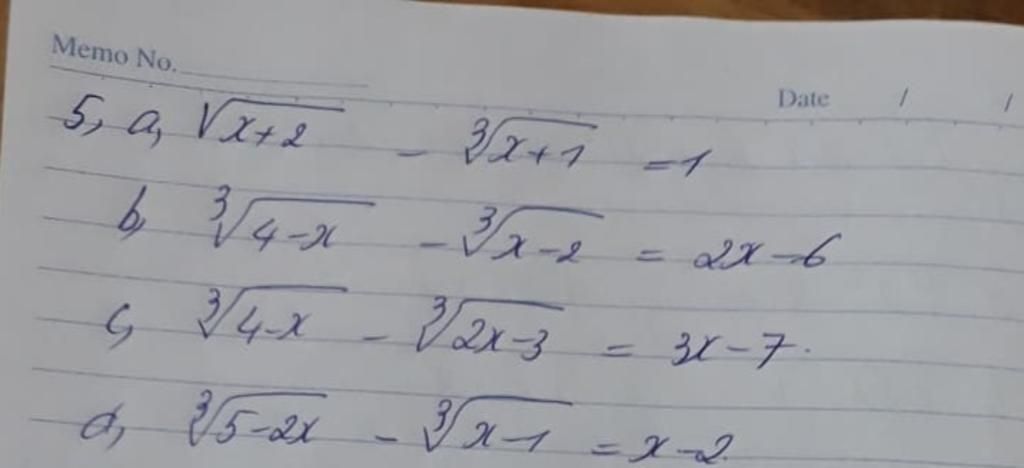 Memo No.
Date / /
5, a, √x+2 - ∛x+1 = 1
b, ∛4-x - ∛x-2 = 2x-6
c, ∛4-x - ∛2x-3 = 3x-7.
d, ∛5-2x - ∛x-1 = x-2.